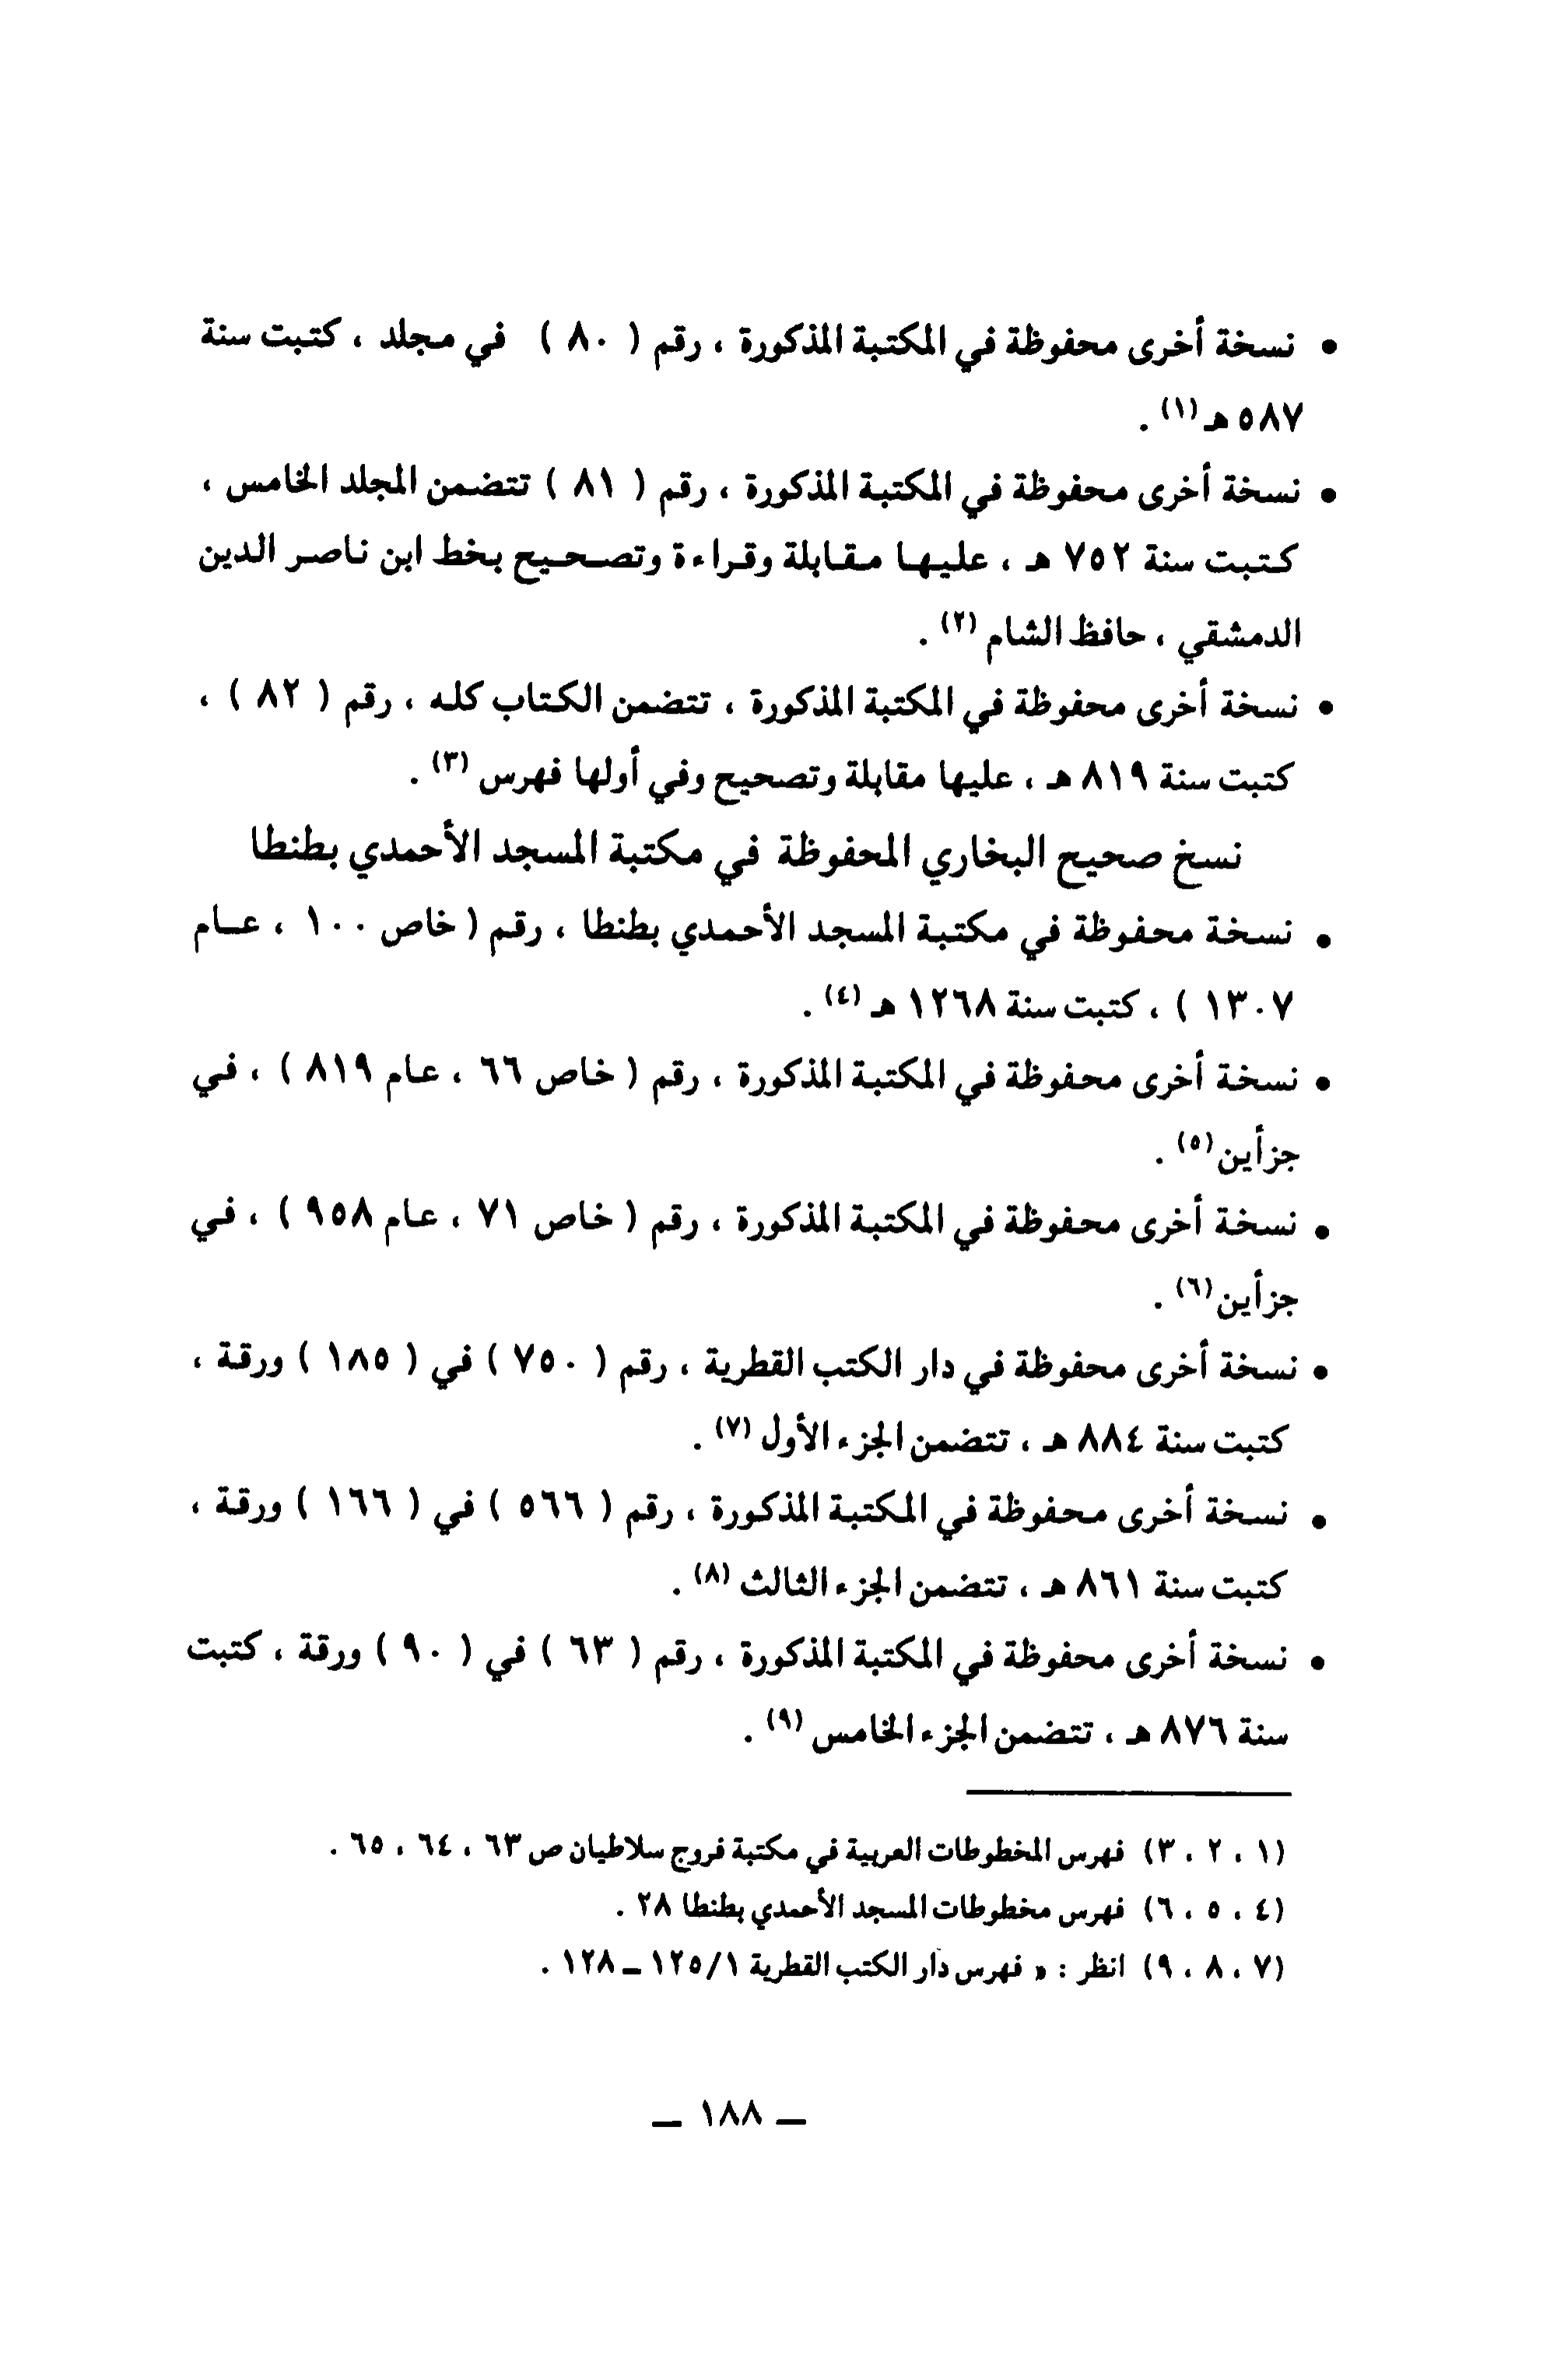 • نسخة أخرى محفوظة في المكتبة المذكورة ، رقم ( ٨٠ ) في مجلد ، كتبت سنة
٥٨٧ هـ (١) .
• نسخة أخرى محفوظة في المكتبة المذكورة ، رقم ( ٨١ ) تتضمن المجلد الخامس ،
كتبت سنة ٧٥٢ هـ ، عليها مقابلة وقراءة وتصحيح بخط ابن ناصر الدين
الدمشقي ، حافظ الشام (٢) .
• نسخة أخرى محفوظة في المكتبة المذكورة ، تتضمن الكتاب كله ، رقم ( ٨٢ ) ،
كتبت سنة ٨١٩ هـ ، عليها مقابلة وتصحيح وفي أولها فهرس (٣) .
نسخ صحيح البخاري المحفوظة في مكتبة المسجد الأحمدي بطنطا
• نسخة محفوظة في مكتبة المسجد الأحمدي بطنطا ، رقم ( خاص ١٠٠ ، عام
١٣٠٧ ) ، كتبت سنة ١٢٦٨ هـ (٤) .
• نسخة أخرى محفوظة في المكتبة المذكورة ، رقم ( خاص ٦٦ ، عام ٨١٩ ) ، في
جزأين (٥) .
• نسخة أخرى محفوظة في المكتبة المذكورة ، رقم ( خاص ٧١ ، عام ٩٥٨ ) ، في
جزأين (٦) .
• نسخة أخرى محفوظة في دار الكتب القطرية ، رقم ( ٧٥٠ ) في ( ١٨٥ ) ورقة ،
كتبت سنة ٨٨٤ هـ ، تتضمن الجزء الأول (٧) .
• نسخة أخرى محفوظة في المكتبة المذكورة ، رقم ( ٥٦٦ ) في ( ١٦٦ ) ورقة ،
كتبت سنة ٨٦١ هـ ، تتضمن الجزء الثالث (٨) .
• نسخة أخرى محفوظة في المكتبة المذكورة ، رقم ( ٦٣ ) في ( ٩٠ ) ورقة ، كتبت
سنة ٨٧٦ هـ ، تتضمن الجزء الخامس (٩) .
(١ ، ٢ ، ٣) فهرس المخطوطات العربية في مكتبة فروج سلاطيان ص ٦٣ ، ٦٤ ، ٦٥ .
(٤ ، ٥ ، ٦) فهرس مخطوطات المسجد الأحمدي بطنطا ٢٨ .
(٧ ، ٨ ، ٩) انظر : « فهرس دار الكتب القطرية ١٢٥/١ ــ ١٢٨ .
ــ ١٨٨ ــ